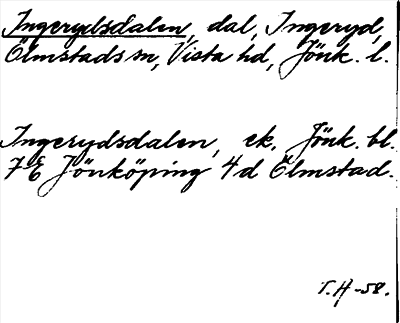 Ingerydsdalen, dal, Ingeryd,
Ölmstads sn, Vista hd, Jönk. l.
Ingerydsdalen, ek. Jönk. bl.
7E Jönköping 4d Ölmstad.
T.H-58.